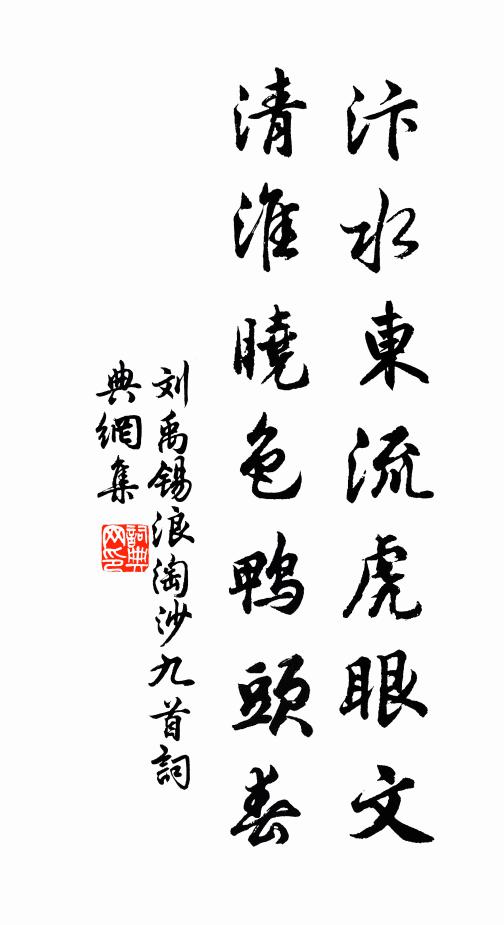 汴水東流虎眼文
清淮曉色鴨頭春
刘禹锡浪淘沙九首詞
典網集
詞典网印